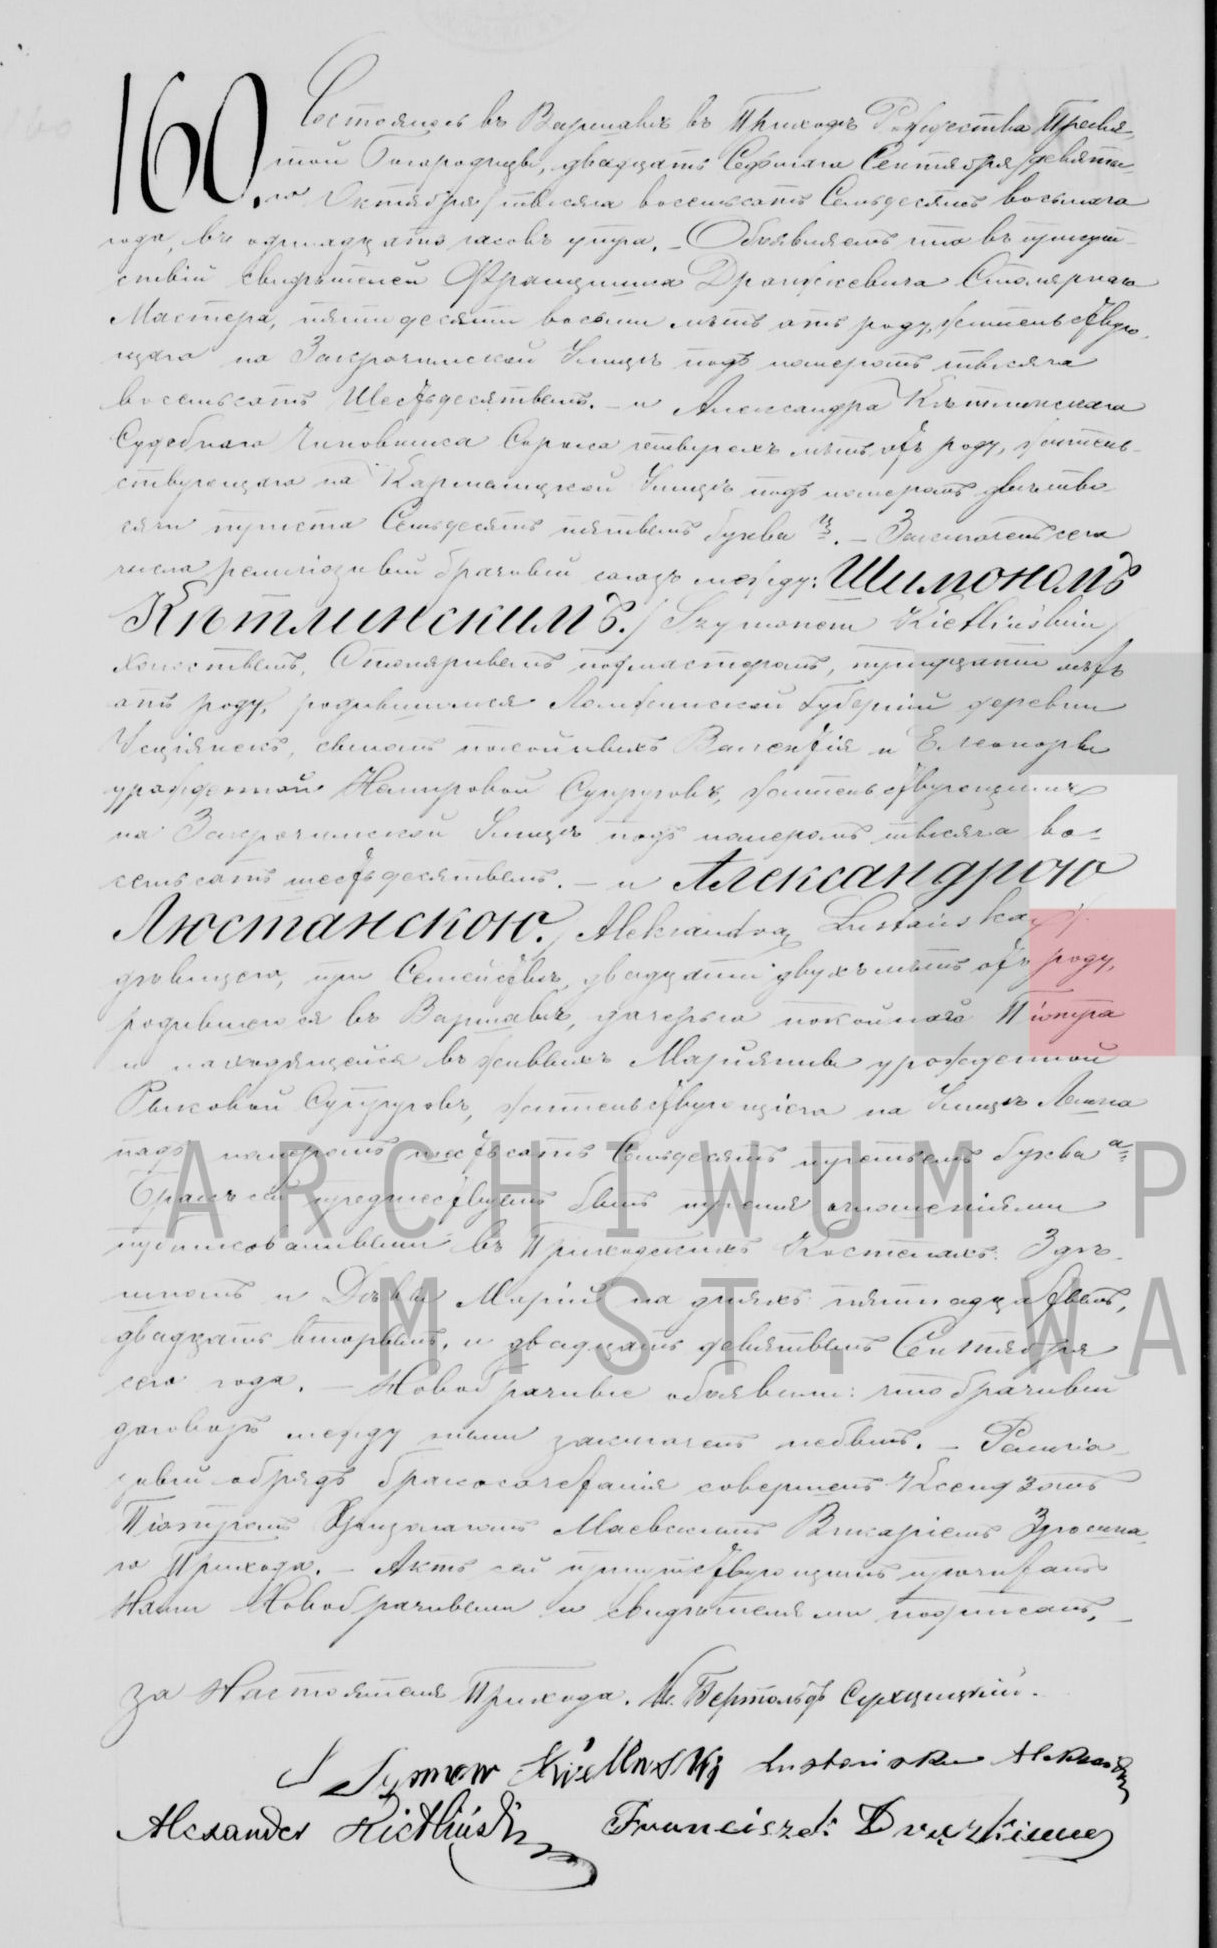 160. Состоялось въ Варшавѣ въ Приходѣ Рождества Пресвя-
той Богородицы, двадцать Седьмаго Сентября /девята-
го Октября/ тысяча восемьсотъ Семьдесятъ восьмаго
года, въ одинадцать часовъ утра. – Объявляемъ что въ присут-
ствіи свидѣтелей Францишка Дронжкевича Столярнаго
Мастера, пятидесяти восьми лѣтъ отъ роду, жительствую-
щаго на Закрочимской Улицѣ подъ номеромъ тысяча
восемьсотъ Шестьдесятымъ. – и Александра Кѣтлинскаго
Судебнаго Чиновника Сорока четырехъ лѣтъ отъ роду, житель-
ствующаго на Кармелицкой Улицѣ подъ номеромъ двѣ ты-
сячи триста Семьдесятъ пятымъ буква ц. – Заключенъ сего
числа религіозный брачный союзъ между: Шимономъ
Кѣтлинскимъ. /Szymonem Kietlińskim/
холостымъ, Столярнымъ подмастеромъ, тридцати лѣтъ
отъ роду, родившимся Ломжинской Губерніи деревни
сыномъ покойныхъ Валентія и Елеоноры
урожденной Супруговъ, жительствующимъ
на Закрочимской Улицѣ подъ номеромъ тысяча во-
семьсотъ шестьдесятымъ. – и Александрою
Люстанскою. /Aleksandrą Lustańską/.
дѣвицею, при Семействѣ, двадцати двухъ лѣтъ отъ роду,
родившеюся въ Варшавѣ, дочерью покойнаго Піотра
и находящейся въ живыхъ Маріянны урожденной
Супруговъ, жительствующею на Улицѣ
подъ номеромъ шестьсотъ Семьдесятъ третьимъ буква а.
Бракъ сей предшествуемъ былъ тремя оглашеніями
публикованными въ Приходскихъ Костелахъ: Здѣ-
шномъ и Дѣвы Маріи на дняхъ пятнадцатымъ,
двадцать вторымъ, и двадцать девятымъ Сентября
сего года. – Новобрачные объявили: что брачный
договоръ между ними заключенъ небылъ. – Религіо-
зный обрядъ бракосочетанія совершенъ Ксендзомъ
Піотромъ Маевскимъ Викаріемъ Здѣшня-
го Прихода. – Актъ сей присутствующимъ прочитанъ
Нами Новобрачными и свидѣтелями подписанъ. –
За Настоятеля Прихода. Кс. Бертольдъ
Szymon Kietlinski Lustańska Aleksandra
Alexander Kietliński Franciszek Drążkiewicz
ARCHIWUM P
M.ST. WA